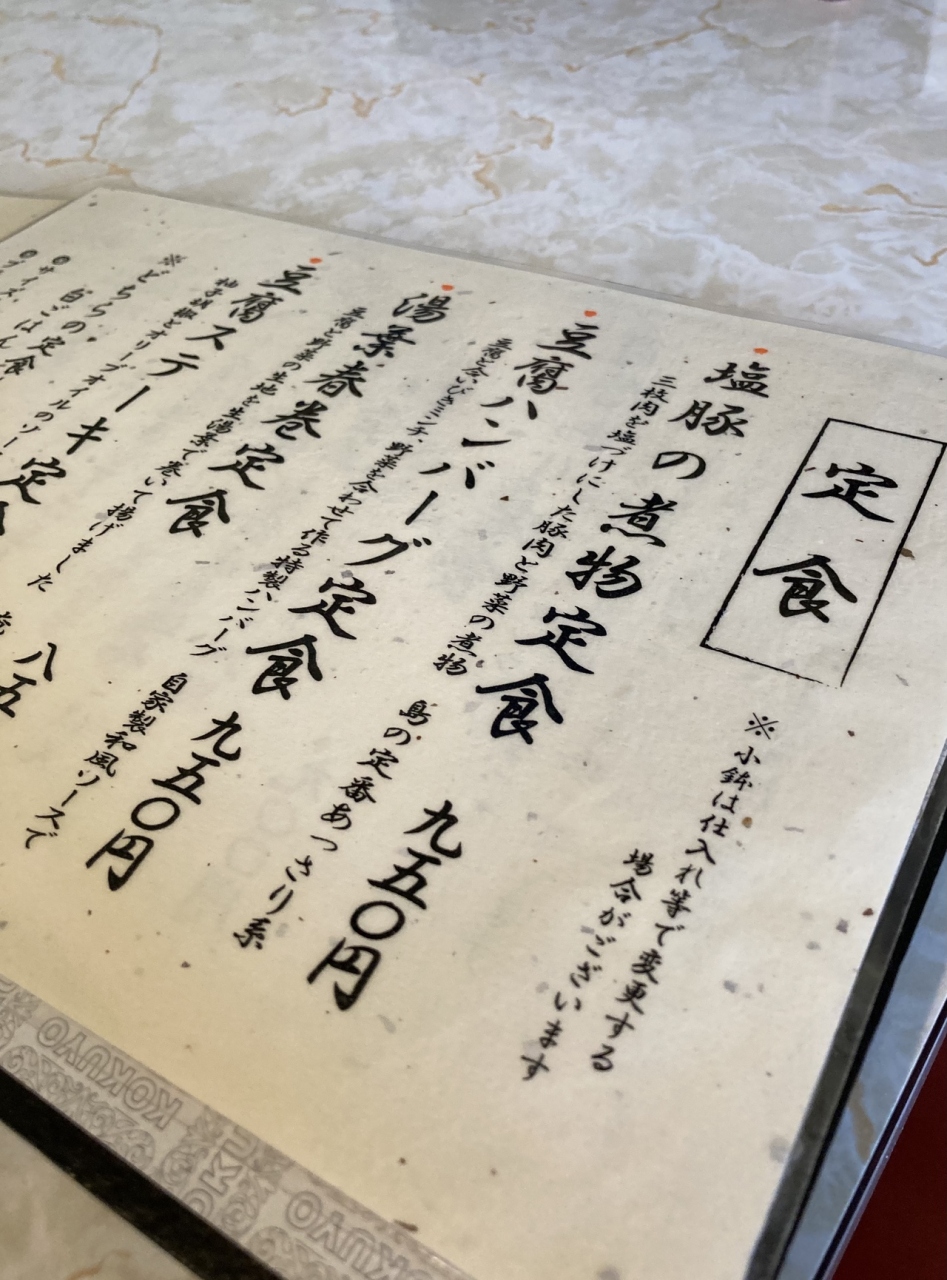 定食
※小鉢は仕入れ等で変更する
場合がございます
塩豚の煮物定食 九五〇円
三枚肉を塩づけにした豚肉と野菜の煮物 島の定番あっさり系
豆腐ハンバーグ定食 九五〇円
豆腐と合いびきミンチ、野菜を合わせて作る特製ハンバーグ 自家製和風ソースで
湯葉春巻定食 八五
豆腐と野菜の生地を生湯葉で巻いて揚げました
豆腐ステーキ定食
柚子胡椒とオリーブオイルのソー
※どちらの定食
白ごはん
KOKUYO
KOKUYO